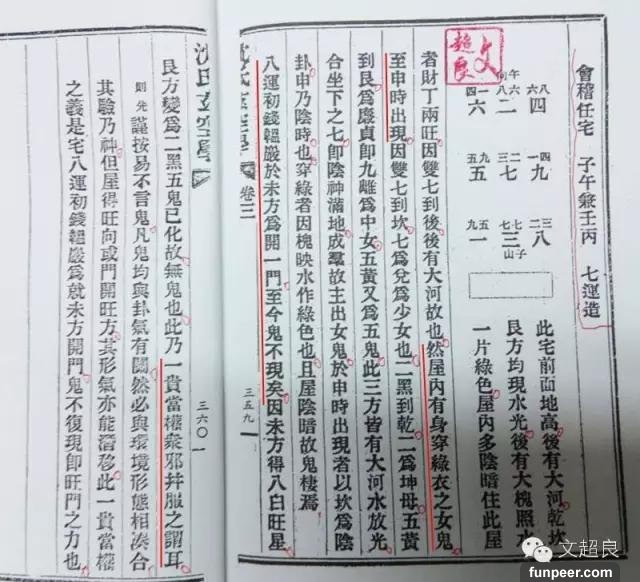 會稽任宅 子午兼壬丙 七運造
向午
六八 四
八六 二
四一 六
一四 九
三二 七
五九 五
二三 八
七七 三
九五 一
山子
此宅前面地高後有大河乾坎
艮方均現水光後有大槐照水
一片綠色屋內多陰暗住此屋
者財丁兩旺因雙七到後後有大河故也然屋內有身穿綠衣之女鬼
至申時出現因雙七到坎七爲兌爲少女也二黑到乾二爲坤母五黃
到艮爲廉貞卽九離爲中女五黃又爲五鬼此三方皆有大河水放光
合坐下之七卽陰神滿地成羣故主出女鬼於申時出現者以坎爲陰
卦申乃陰時也穿綠者因槐映水作綠色也且屋陰暗故鬼棲焉
八運初錢韞巖於未方爲開一門至今鬼不現矣因未方得八白旺星
沈氏玄空學 卷三 三五九
艮方變爲二黑五鬼已化故無鬼也此乃一貴當權衆邪幷服之謂耳
則先 謹按易不言鬼凡鬼均與卦氣有關然必與環境形態相湊合
其驗乃神但屋得旺向或門開旺方其形氣亦能潛移此一貴當權
之義是宅八運初錢韞巖爲就未方開門鬼不復現卽旺門之力也
沈氏玄空學 三六〇
文超良
文超良
funpeer.com